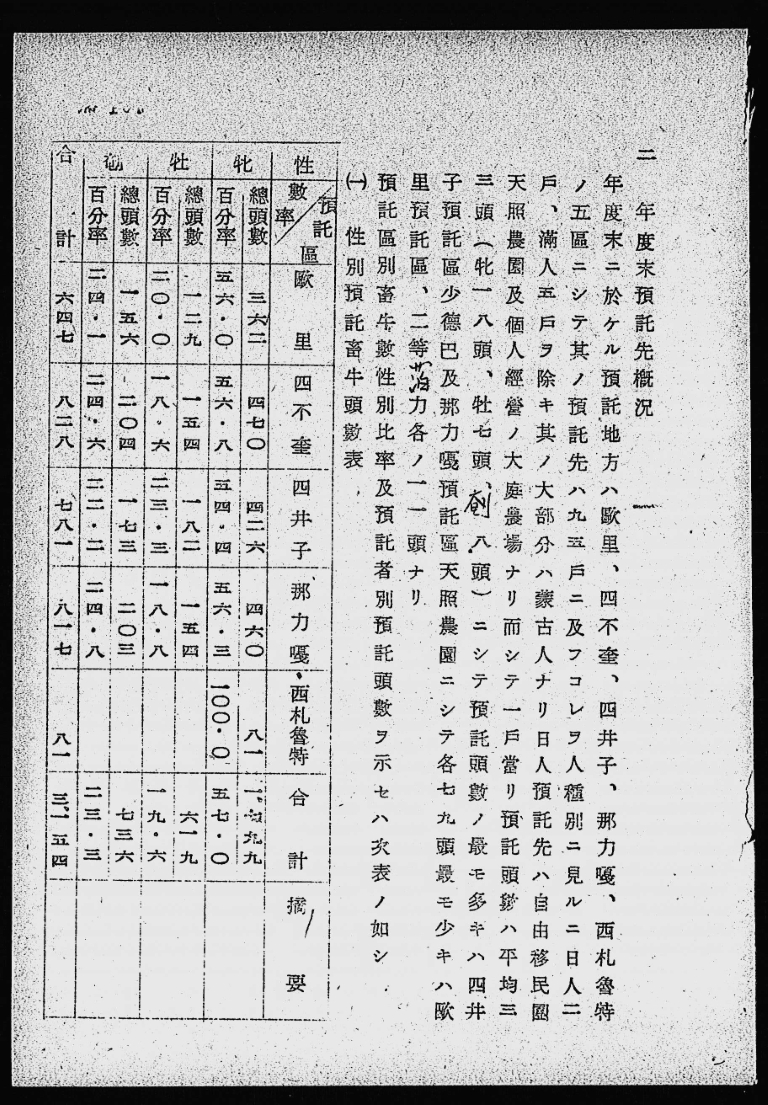 二　年度末預託先概況
年度末ニ於ケル預託地方ハ歐里、四不奎、四井子、那力嘎、西札魯特
ノ五區ニシテ其ノ預託先ハ九五戸ニ及フコレヲ人種別ニ見ルニ日人二
戸、滿人五戸ヲ除キ其ノ大部分ハ蒙古人ナリ日人預託先ハ自由移民團
天照農園及個人經營ノ大庭農場ナリ而シテ一戸當リ預託頭數ハ平均三
三頭（牝一八頭、牡七頭、八頭）ニシテ預託頭數ノ最モ多キハ四井
子預託區少德巴及那力嘎預託區天照農園ニシテ各七九頭最モ少キハ歐
里預託區、二等力各ノ一一頭ナリ
預託區別畜牛數性別比率及預託者別預託頭數ヲ示セハ次表ノ如シ
㈠　性別預託畜牛頭數表
性　數率　預託區　歐里　四不奎　四井子　那力嘎　西札魯特　合計　摘要
牝　總頭數　三六二　四七〇　四二六　四六〇　八一　一、七九九
百分率　五六・〇　五六・八　五四・四　五六・三　一〇〇・〇　五七・〇
牡　總頭數　一二九　一五四　一八二　一五四　六一九
百分率　二〇・〇　一八・六　二三・三　一八・八　一九・六
總頭數　一五六　二〇四　一七三　二〇三　七三六
百分率　二四・一　二四・六　二二・二　二四・八　二三・三
合計　六四七　八二八　七八一　八一七　八一　三、一五四